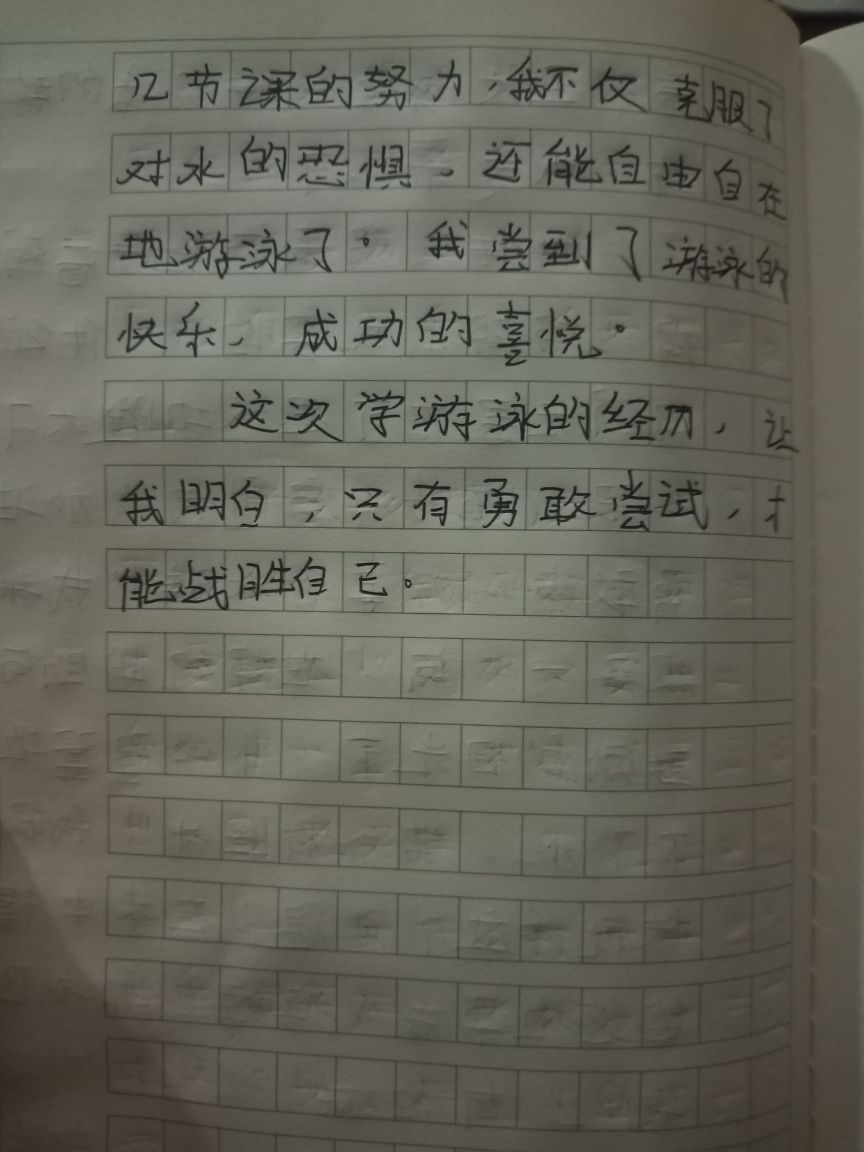 几节课的努力，我不仅克服了
对水的恐惧、还能自由自在
地游泳了。我尝到了游泳的
快乐、成功的喜悦。
这次学游泳的经历，让
我明白，只有勇敢尝试，才
能战胜自己。